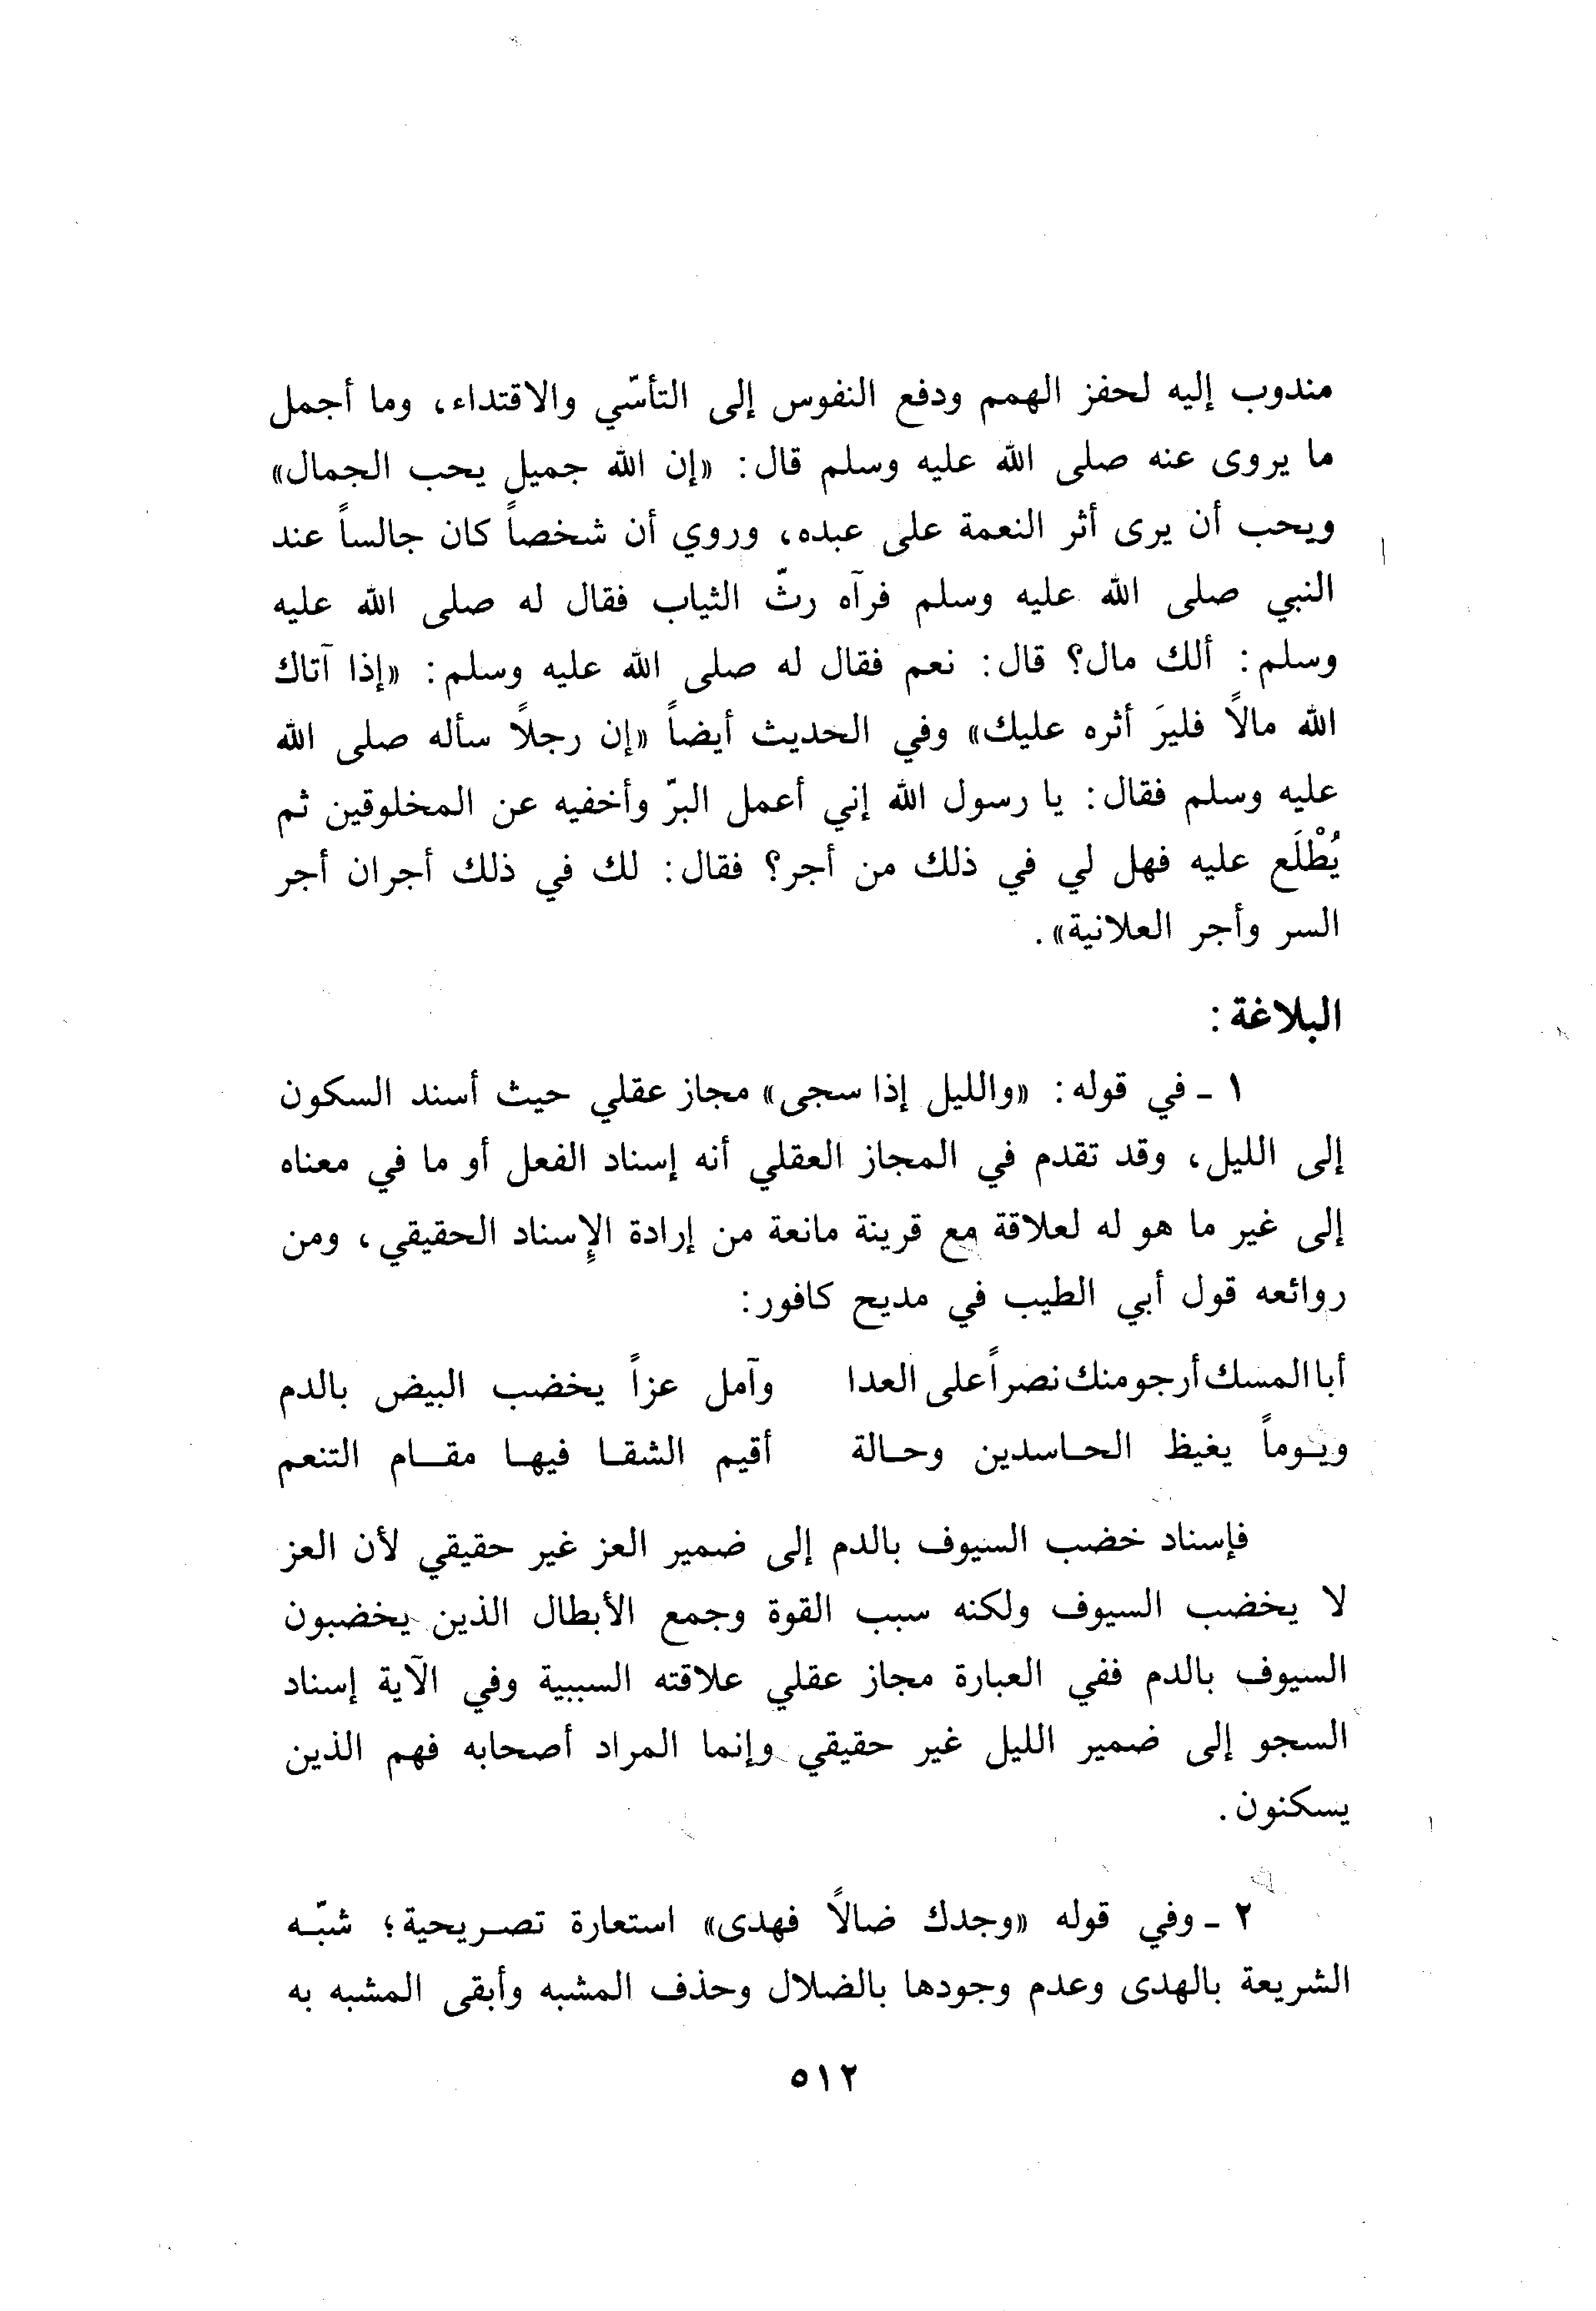 مندوب إليه لحفز الهمم ودفع النفوس إلى التأسّي والاقتداء، وما أجمل
ما يروى عنه صلى الله عليه وسلم قال: «إن الله جميل يحب الجمال»
ويحب أن يرى أثر النعمة على عبده، وروي أن شخصاً كان جالساً عند
النبي صلى الله عليه وسلم فرآه رثّ الثياب فقال له صلى الله عليه
وسلم: ألك مال؟ قال: نعم فقال له صلى الله عليه وسلم: «إذا آتاك
الله مالاً فليرَ أثره عليك» وفي الحديث أيضاً «إن رجلاً سأله صلى الله
عليه وسلم فقال: يا رسول الله إني أعمل البرّ وأخفيه عن المخلوقين ثم
يُطْلَع عليه فهل لي في ذلك من أجر؟ فقال: لك في ذلك أجران أجر
السر وأجر العلانية».
البلاغة:
١ ـ في قوله: «والليل إذا سجى» مجاز عقلي حيث أسند السكون
إلى الليل، وقد تقدم في المجاز العقلي أنه إسناد الفعل أو ما في معناه
إلى غير ما هو له لعلاقة مع قرينة مانعة من إرادة الإسناد الحقيقي، ومن
روائعه قول أبي الطيب في مديح كافور:
أبا المسك أرجو منك نصراً على العدا وآمل عزاً يخضب البيض بالدم
ويـوماً يغيظ الحـاسدين وحـالة أقيم الشقـا فيهـا مقـام التنعم
فإسناد خضب السيوف بالدم إلى ضمير العز غير حقيقي لأن العز
لا يخضب السيوف ولكنه سبب القوة وجمع الأبطال الذين يخضبون
السيوف بالدم ففي العبارة مجاز عقلي علاقته السببية وفي الآية إسناد
السجو إلى ضمير الليل غير حقيقي وإنما المراد أصحابه فهم الذين
يسكنون.
٢ ـ وفي قوله «وجدك ضالاً فهدى» استعارة تصـريحية؛ شبّـه
الشريعة بالهدى وعدم وجودها بالضلال وحذف المشبه وأبقى المشبه به
٥١٢